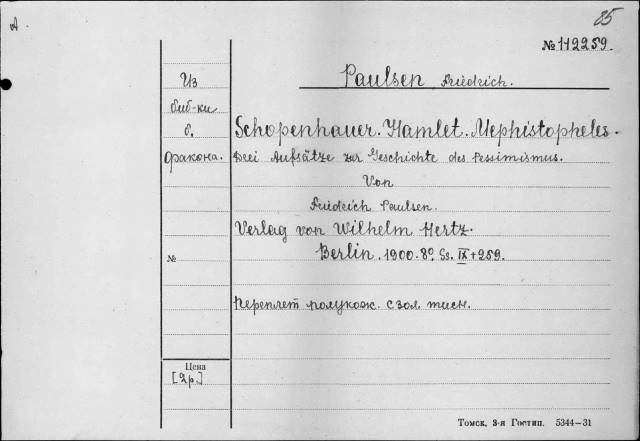 А
85
№ 112259.
Из
биб-ки
б.
Фракона.
Paulsen Friedrich.
Schopenhauer. Hamlet. Mephistopheles.
Drei Aufsätze zur Geschichte des Pessimismus.
Von
Friedrich Paulsen.
Verlag von Wilhelm Hertz.
№
Berlin. 1900. 8º. Ss. IX + 259.
Переплет полукож. с зол. тисн.
Цена
[2р.]
Томск, 3-я Гостип. 5344—31